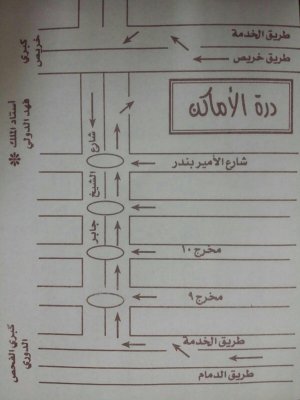 طريق الخدمة
طريق خريص
كبري
خريص
درة الأماكن
أستاد الملك
فهد الدولي
شارع الأمير بندر
شارع
الشيخ
جابر
مخرج ١٠
مخرج ٩
طريق الخدمة
طريق الدمام
كبري الفحص
الدوري